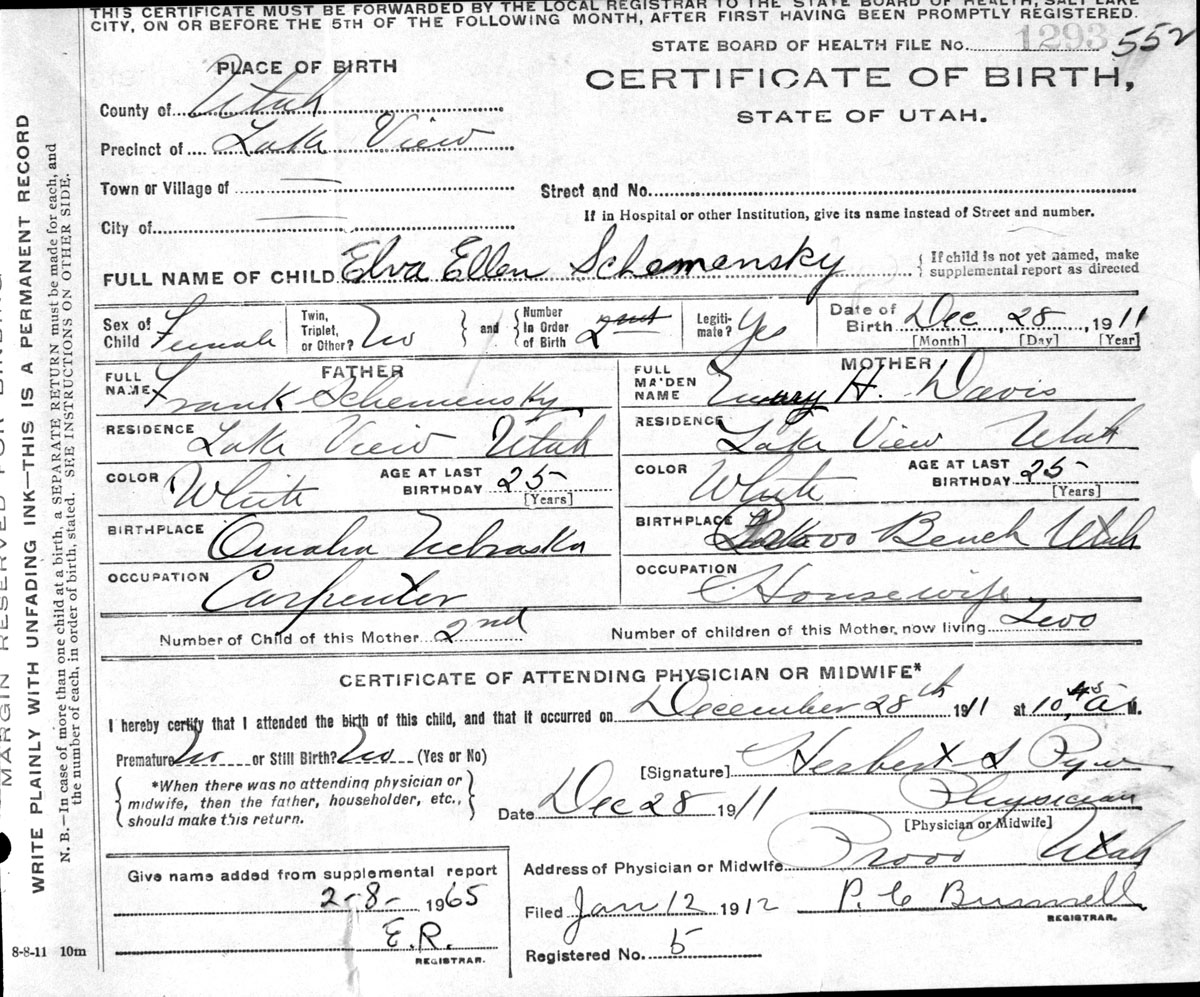 THIS CERTIFICATE MUST BE FORWARDED BY THE LOCAL REGISTRAR TO THE STATE BOARD OF HEALTH, SALT LAKE
CITY, ON OR BEFORE THE 5TH OF THE FOLLOWING MONTH, AFTER FIRST HAVING BEEN PROMPTLY REGISTERED.
STATE BOARD OF HEALTH FILE No. 1293 552
PLACE OF BIRTH
CERTIFICATE OF BIRTH,
STATE OF UTAH.
County of Utah
Precinct of Lake View
Town or Village of
Street and No.
If in Hospital or other Institution, give its name instead of Street and number.
City of
FULL NAME OF CHILD Elva Ellen Schemensky { If child is not yet named, make supplemental report as directed
Sex of Child Female
Twin, Triplet, or Other? No } and { Number In Order of Birth 2
Legitimate? Yes
Date of Birth Dec, 28, 1911
[Month] [Day] [Year]
FATHER
FULL NAME Frank Schemensky
RESIDENCE Lake View Utah
COLOR White AGE AT LAST BIRTHDAY 25 [Years]
BIRTHPLACE Omaha Nebraska
OCCUPATION Carpenter
MOTHER
FULL MAIDEN NAME H. Davis
RESIDENCE Lake View Utah
COLOR White AGE AT LAST BIRTHDAY 25 [Years]
BIRTHPLACE Bench Utah
OCCUPATION Housewife
Number of Child of this Mother 2nd Number of children of this Mother, now living Two
CERTIFICATE OF ATTENDING PHYSICIAN OR MIDWIFE*
I hereby certify that I attended the birth of this child, and that it occurred on December 28th 1911 at 10,45 a M.
Premature No or Still Birth? No (Yes or No)
{ *When there was no attending physician or
midwife, then the father, householder, etc.,
should make this return. }
[Signature] Herbert S Pyne
Date Dec 28 1911 Physician
[Physician or Midwife]
Address of Physician or Midwife Provo Utah
Give name added from supplemental report
2-8- 1965
E.R.
REGISTRAR.
Filed Jan 12 1912 P. C Bunnell
REGISTRAR.
Registered No. 5
8-8-11 10m
MARGIN RESERVED FOR BINDING
WRITE PLAINLY WITH UNFADING INK—THIS IS A PERMANENT RECORD
N. B.—In case of more than one child at a birth, a SEPARATE RETURN must be made for each, and
the number of each, in order of birth, stated. SEE INSTRUCTIONS ON OTHER SIDE.